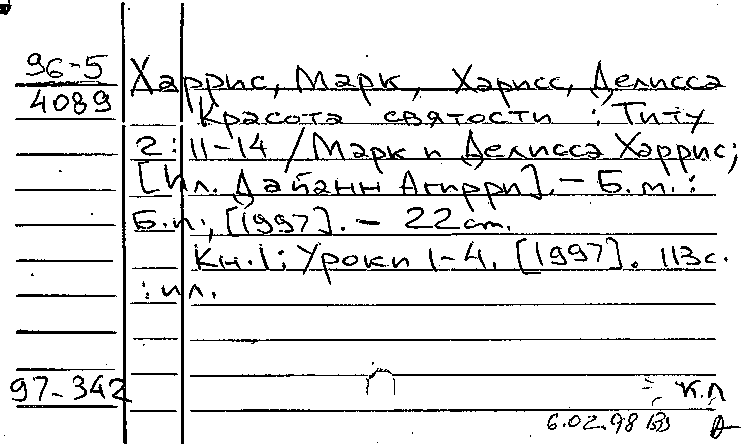 96-5
4089
Харрис, Марк, Харисс, Делисса
Красота святости : Титу
2:11-14 / Марк и Делисса Харрис;
[Ил. Дайанн Агирри]. – Б.м. :
Б.и., [1997]. – 22 cm.
Кн.1: Уроки 1-4. [1997]. 113 с.
: ил.
97-342
к.п
6.02.98